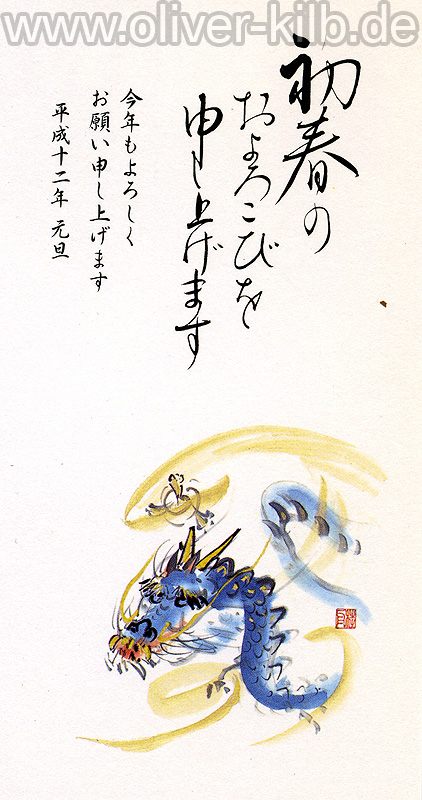 www.oliver-kilb.de
初春の
およろこびを
申し上げます
今年もよろしく
お願い申し上げます
平成十二年 元旦